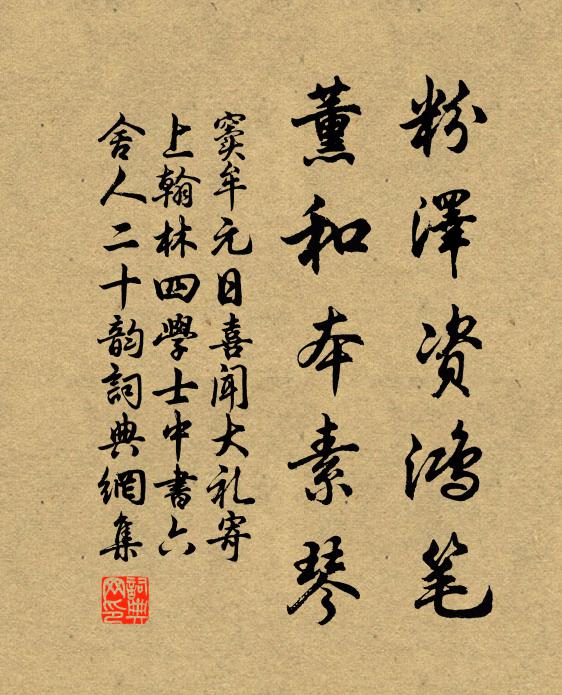 粉澤资鸿笔
薰和本素琴
窦牟元日喜闻大礼寄
上翰林四學士中書六
舍人二十韵詞典網集
詞典网印